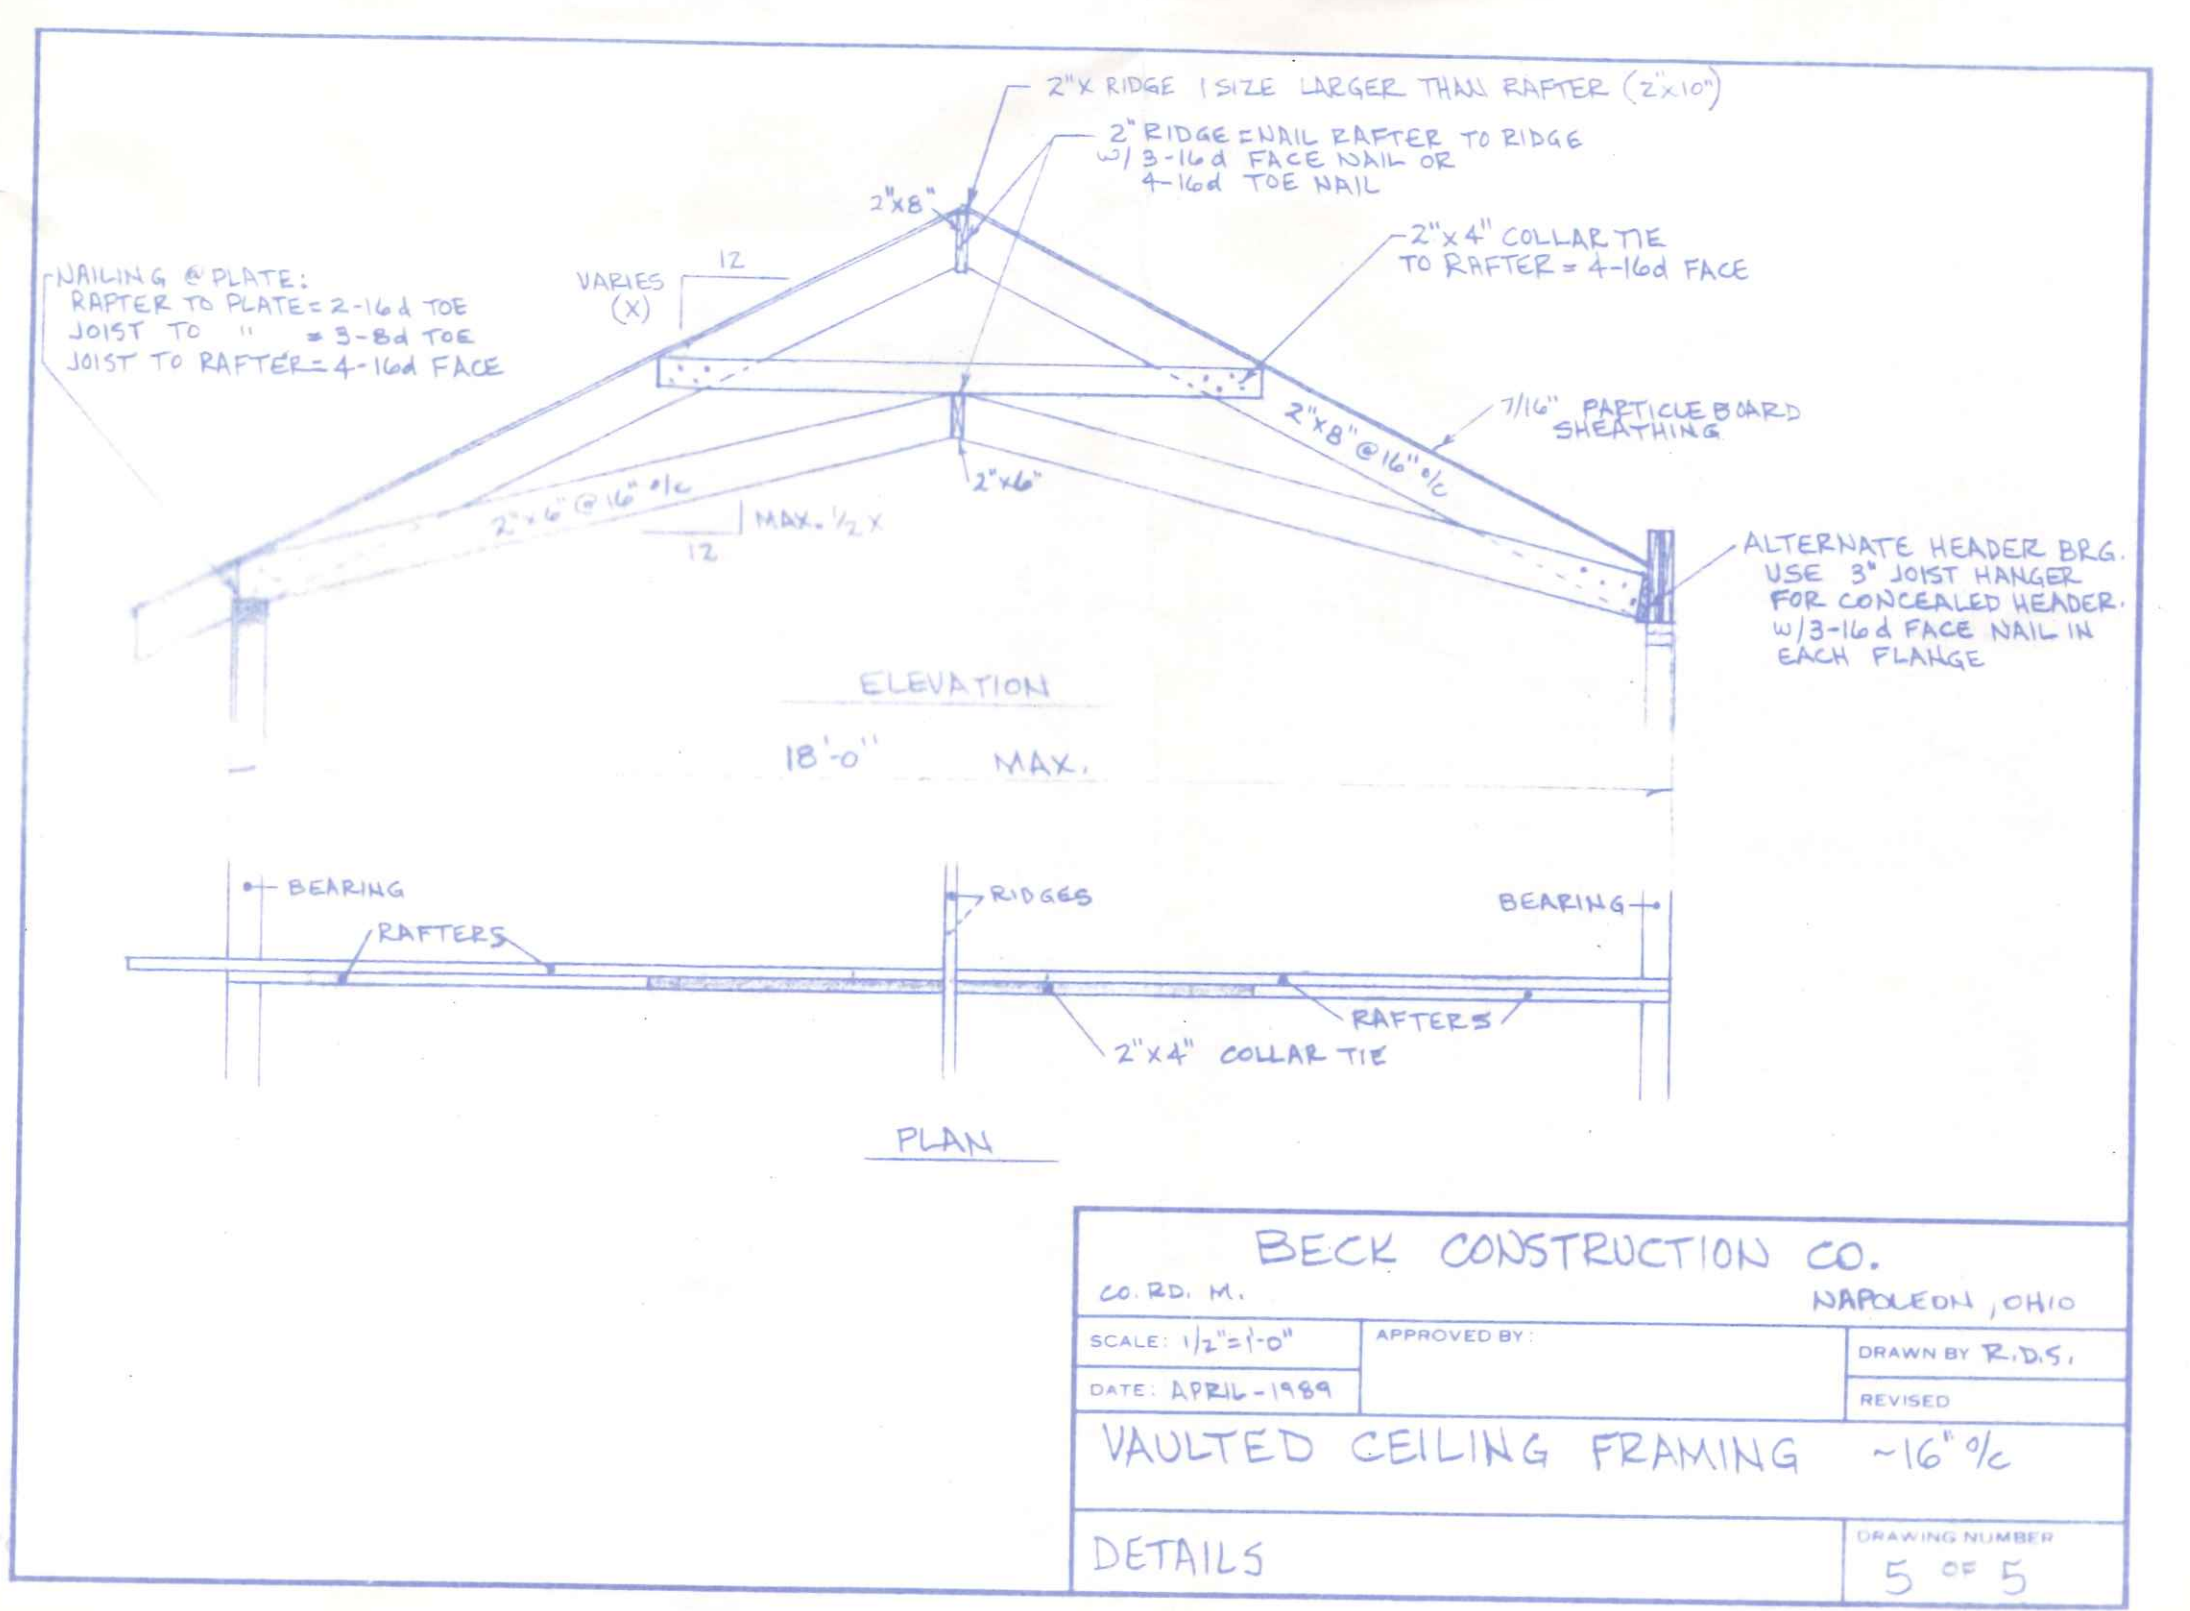 2"X RIDGE 1 SIZE LARGER THAN RAFTER (2"x10")
2" RIDGE = NAIL RAFTER TO RIDGE
w/ 3-16d FACE NAIL OR
4-16d TOE NAIL
2"x8"
2"x4" COLLAR TIE
TO RAFTER = 4-16d FACE
NAILING @ PLATE:
RAFTER TO PLATE = 2-16d TOE
JOIST TO " = 3-8d TOE
JOIST TO RAFTER = 4-16d FACE
12
VARIES
(X)
7/16" PARTICLE BOARD
SHEATHING
2"x8" @ 16" o/c
2"x6" @ 16" o/c
2"x6"
MAX. 1/2 X
12
ALTERNATE HEADER BRG.
USE 3" JOIST HANGER
FOR CONCEALED HEADER.
w/3-16d FACE NAIL IN
EACH FLANGE
ELEVATION
18'-0" MAX.
BEARING
RIDGES
BEARING
RAFTERS
RAFTERS
2"x4" COLLAR TIE
PLAN
BECK CONSTRUCTION CO.
CO. RD. M. NAPOLEON, OHIO
SCALE: 1/2"=1'-0"
APPROVED BY:
DRAWN BY R.D.S.
DATE: APRIL-1989
REVISED
VAULTED CEILING FRAMING ~16" o/c
DETAILS
DRAWING NUMBER
5 OF 5